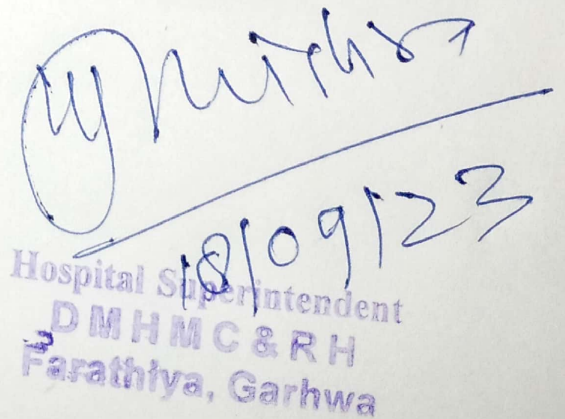 18/09/23
Hospital Superintendent
DMHMC & RH
Farathiya, Garhwa